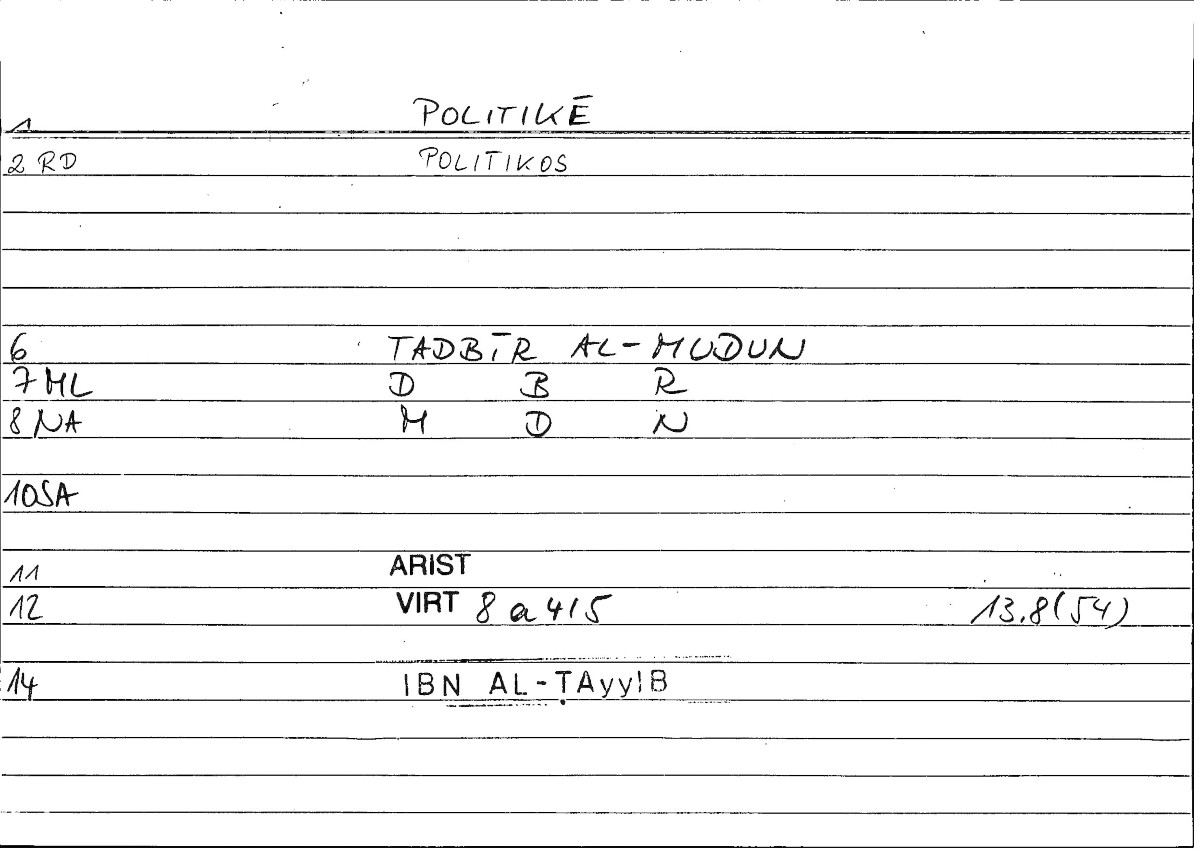 1 POLITIKĒ
2 RD POLITIKOS
6 TADBĪR AL-MUDUN
7 ML D B R
8 NA M D N
10 SA
11 ARIST
12 VIRT 8 a 4/5 13.8(54)
14 IBN AL-ṬAyyIB